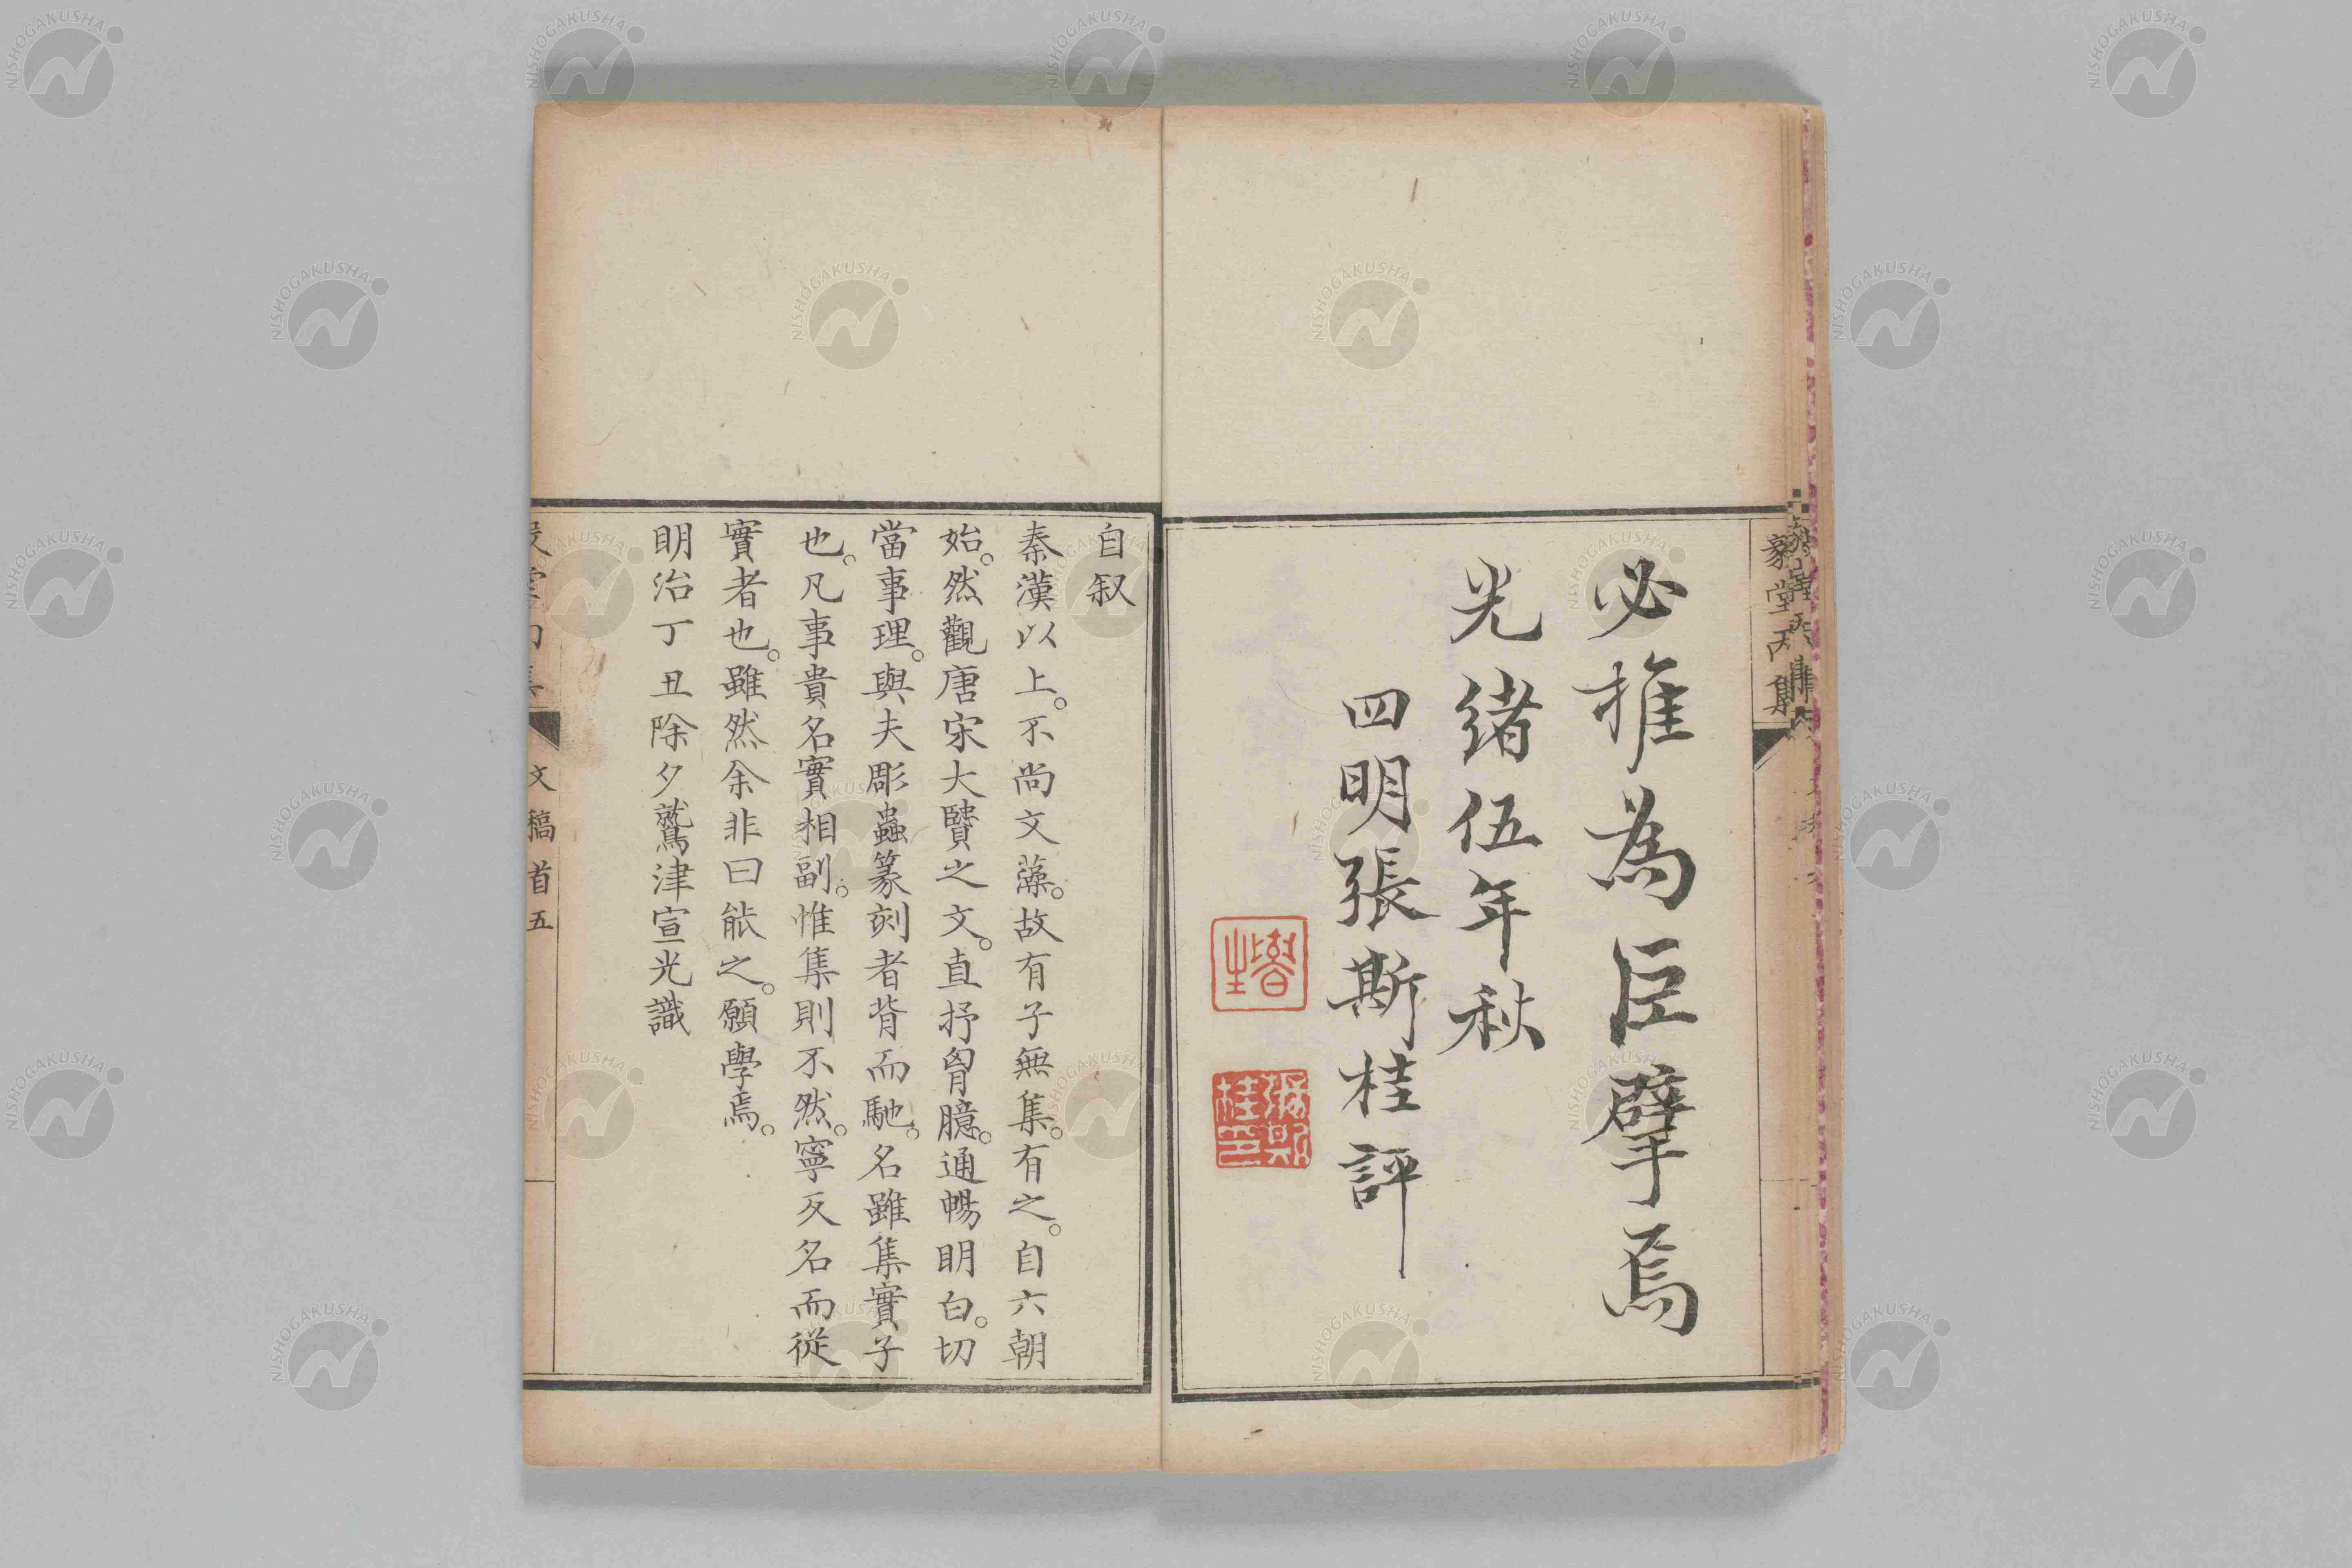 必推為巨擘焉
光緒伍年秋
四明張斯桂評
張斯桂印
自叙
秦漢以上。不尚文藻。故有子無集。有之。自六朝
始。然觀唐宋大賢之文。直抒胷臆。通暢明白。切
當事理。與夫彫蟲篆刻者背而馳。名雖集實子
也。凡事貴名實相副。惟集則不然。寧反名而從
實者也。雖然余非曰能之。願學焉。
明治丁丑除夕鷲津宣光識
文稿首五
NISHOGAKUSHA